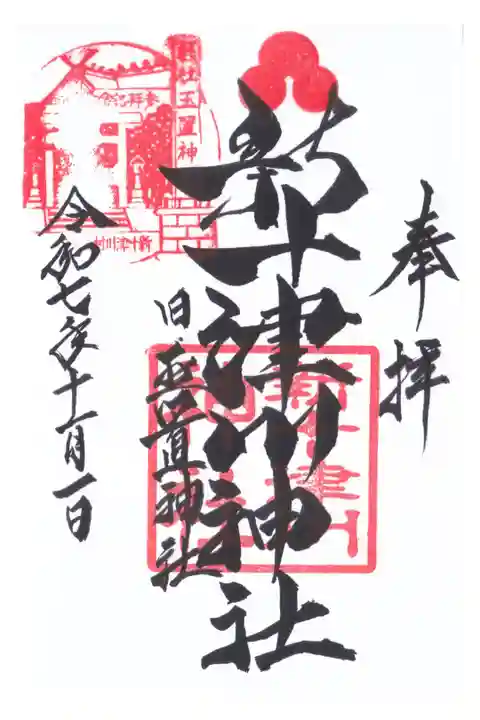 奉拝
新十津川神社
旧玉置神社
令和七年十一月一日
郷社玉置神
参拝記念
新十津川村